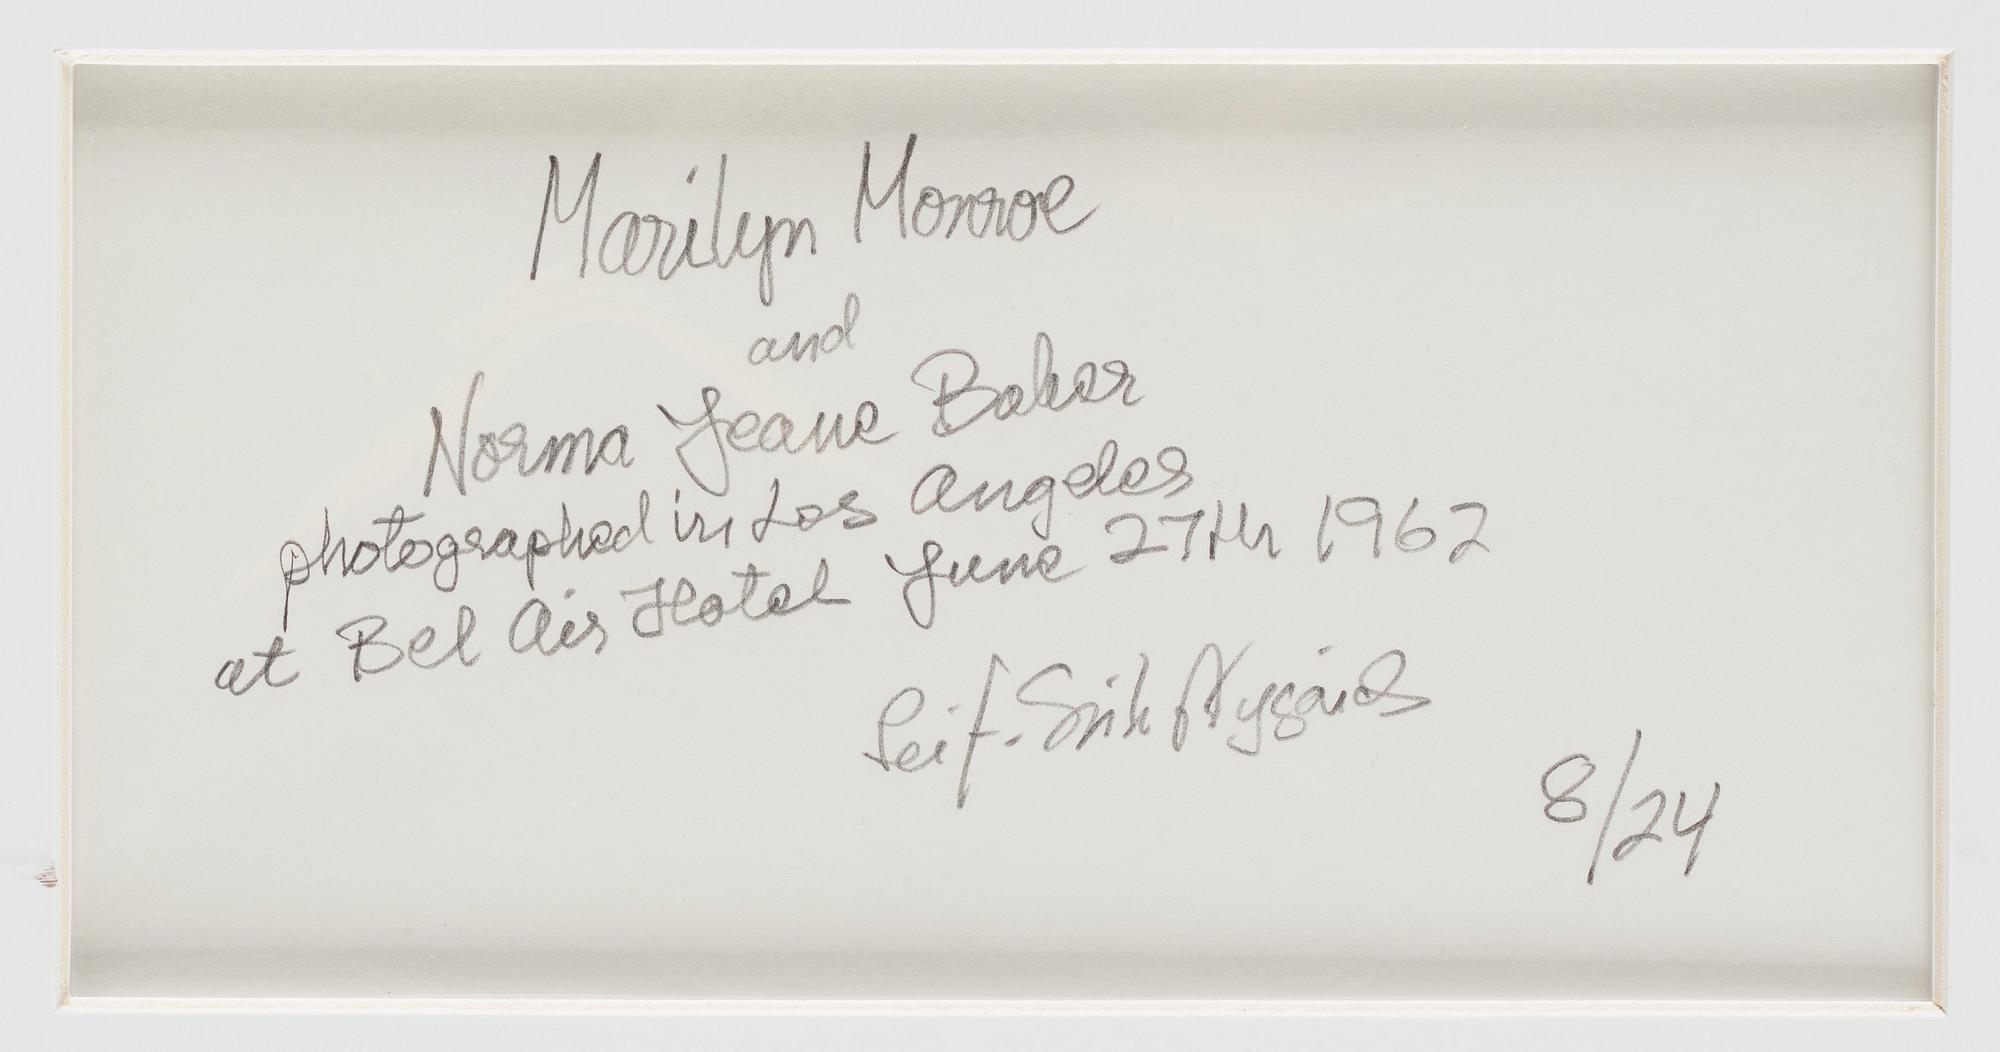 Marilyn Monroe
and
Norma Jeane Baker
photographed in Los Angeles
at Bel Air Hotel June 27th 1962
Leif-Erik Nygårds
8/24